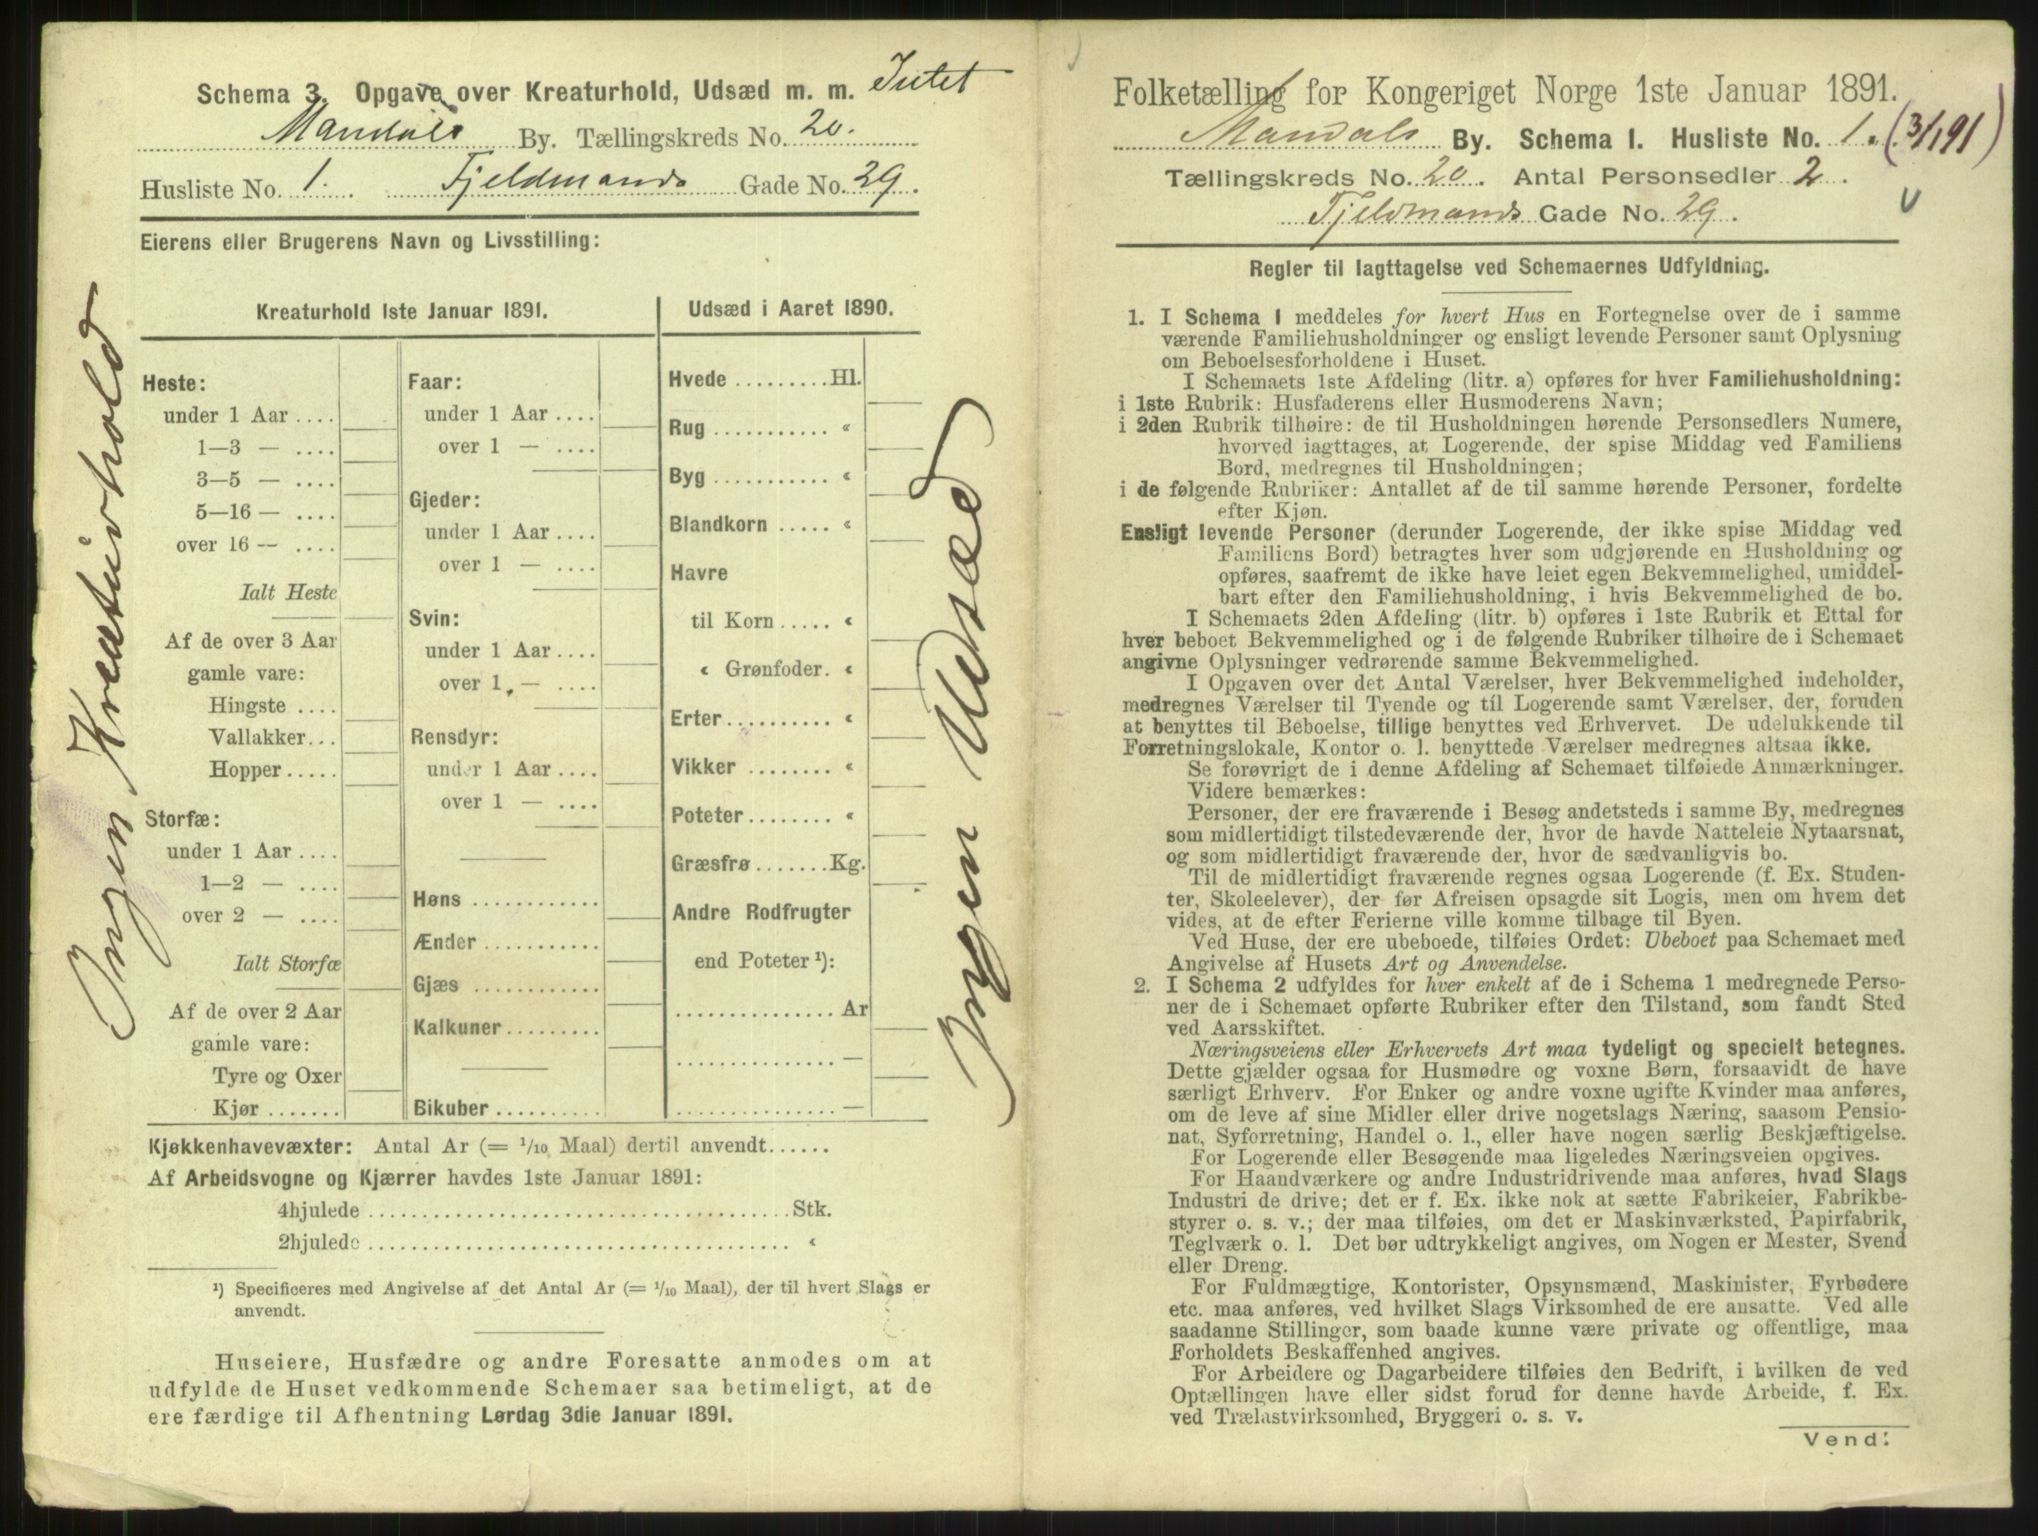 Schema 3. Opgave over Kreaturhold, Udsæd m. m. Intet
Mandals By. Tællingskreds No. 20.
Husliste No. 1. Fjeldmands Gade No. 29.
Eierens eller Brugerens Navn og Livsstilling:
Kreaturhold 1ste Januar 1891.
Heste:
under 1 Aar ....
1—3 — ....
3—5 — ....
5—16 — ....
over 16 — ....
Ialt Heste
Af de over 3 Aar
gamle vare:
Hingste ....
Vallakker...
Hopper.....
Storfæ:
under 1 Aar ....
1—2 — ....
over 2 — ....
Ialt Storfæ
Af de over 2 Aar
gamle vare:
Tyre og Oxer
Kjør .......
Faar:
under 1 Aar ....
over 1 — ....
Gjeder:
under 1 Aar ....
over 1 — ....
Svin:
under 1 Aar ....
over 1 — ....
Rensdyr:
under 1 Aar ....
over 1 — ....
Høns ............
Ænder ...........
Gjæs ............
Kalkuner.........
Bikuber ..........
Udsæd i Aaret 1890.
Hvede .........Hl.
Rug ........... «
Byg ........... «
Blandkorn ..... «
Havre
til Korn ..... «
« Grønfoder. «
Erter.......... «
Vikker ........ «
Poteter........ «
Græsfrø .......Kg.
Andre Rodfrugter
end Poteter ¹):
............... Ar
............... —
............... —
Ingen Kreaturhold
Ingen Udsæd
Kjøkkenhavevæxter: Antal Ar (= 1/10 Maal) dertil anvendt......
Af Arbeidsvogne og Kjærrer havdes 1ste Januar 1891:
4hjulede ........................................Stk.
2hjulede ........................................ «
¹) Specificeres med Angivelse af det Antal Ar (= 1/10 Maal), der til hvert Slags er
anvendt.
Huseiere, Husfædre og andre Foresatte anmodes om at
udfylde de Huset vedkommende Schemaer saa betimeligt, at de
ere færdige til Afhentning Lørdag 3die Januar 1891.
Folketælling for Kongeriget Norge 1ste Januar 1891.
Mandals By. Schema I. Husliste No. 1. (3/1 91)
Tællingskreds No. 20. Antal Personsedler 2.
Fjeldmands Gade No. 29.
Regler til Iagttagelse ved Schemaernes Udfyldning.
1. I Schema 1 meddeles for hvert Hus en Fortegnelse over de i samme
værende Familiehusholdninger og ensligt levende Personer samt Oplysning
om Beboelsesforholdene i Huset.
I Schemaets 1ste Afdeling (litr. a) opføres for hver Familiehusholdning:
i 1ste Rubrik: Husfaderens eller Husmoderens Navn;
i 2den Rubrik tilhøire: de til Husholdningen hørende Personsedlers Numere,
hvorved iagttages, at Logerende, der spise Middag ved Familiens
Bord, medregnes til Husholdningen;
i de følgende Rubriker: Antallet af de til samme hørende Personer, fordelte
efter Kjøn.
Ensligt levende Personer (derunder Logerende, der ikke spise Middag ved
Familiens Bord) betragtes hver som udgjørende en Husholdning og
opføres, saafremt de ikke have leiet egen Bekvemmelighed, umiddel-
bart efter den Familiehusholdning, i hvis Bekvemmelighed de bo.
I Schemaets 2den Afdeling (litr. b) opføres i 1ste Rubrik et Ettal for
hver beboet Bekvemmelighed og i de følgende Rubriker tilhøire de i Schemaet
angivne Oplysninger vedrørende samme Bekvemmelighed.
I Opgaven over det Antal Værelser, hver Bekvemmelighed indeholder,
medregnes Værelser til Tyende og til Logerende samt Værelser, der, foruden
at benyttes til Beboelse, tillige benyttes ved Erhvervet. De udelukkende til
Forretningslokale, Kontor o. l. benyttede Værelser medregnes altsaa ikke.
Se forøvrigt de i denne Afdeling af Schemaet tilføiede Anmærkninger.
Videre bemærkes:
Personer, der ere fraværende i Besøg andetsteds i samme By, medregnes
som midlertidigt tilstedeværende der, hvor de havde Natteleie Nytaarsnat,
og som midlertidigt fraværende der, hvor de sædvanligvis bo.
Til de midlertidigt fraværende regnes ogsaa Logerende (f. Ex. Studen-
ter, Skoleelever), der før Afreisen opsagde sit Logis, men om hvem det
vides, at de efter Ferierne ville komme tilbage til Byen.
Ved Huse, der ere ubeboede, tilføies Ordet: Ubeboet paa Schemaet med
Angivelse af Husets Art og Anvendelse.
2. I Schema 2 udfyldes for hver enkelt af de i Schema 1 medregnede Perso-
ner de i Schemaet opførte Rubriker efter den Tilstand, som fandt Sted
ved Aarsskiftet.
Næringsveiens eller Erhvervets Art maa tydeligt og specielt betegnes.
Dette gjælder ogsaa for Husmødre og voxne Børn, forsaavidt de have
særligt Erhverv. For Enker og andre voxne ugifte Kvinder maa anføres,
om de leve af sine Midler eller drive nogetslags Næring, saasom Pensio-
nat, Syforretning, Handel o. l., eller have nogen særlig Beskjæftigelse.
For Logerende eller Besøgende maa ligeledes Næringsveien opgives.
For Haandværkere og andre Industridrivende maa anføres, hvad Slags
Industri de drive; det er f. Ex. ikke nok at sætte Fabrikeier, Fabrikbe-
styrer o. s. v.; der maa tilføies, om det er Maskinværksted, Papirfabrik,
Teglværk o. l. Det bør udtrykkeligt angives, om Nogen er Mester, Svend
eller Dreng.
For Fuldmægtige, Kontorister, Opsynsmænd, Maskinister, Fyrbødere
etc. maa anføres, ved hvilket Slags Virksomhed de ere ansatte. Ved alle
saadanne Stillinger, som baade kunne være private og offentlige, maa
Forholdets Beskaffenhed angives.
For Arbeidere og Dagarbeidere tilføies den Bedrift, i hvilken de ved
Optællingen have eller sidst forud for denne havde Arbeide, f. Ex.
ved Trælastvirksomhed, Bryggeri o. s. v.
Vend!